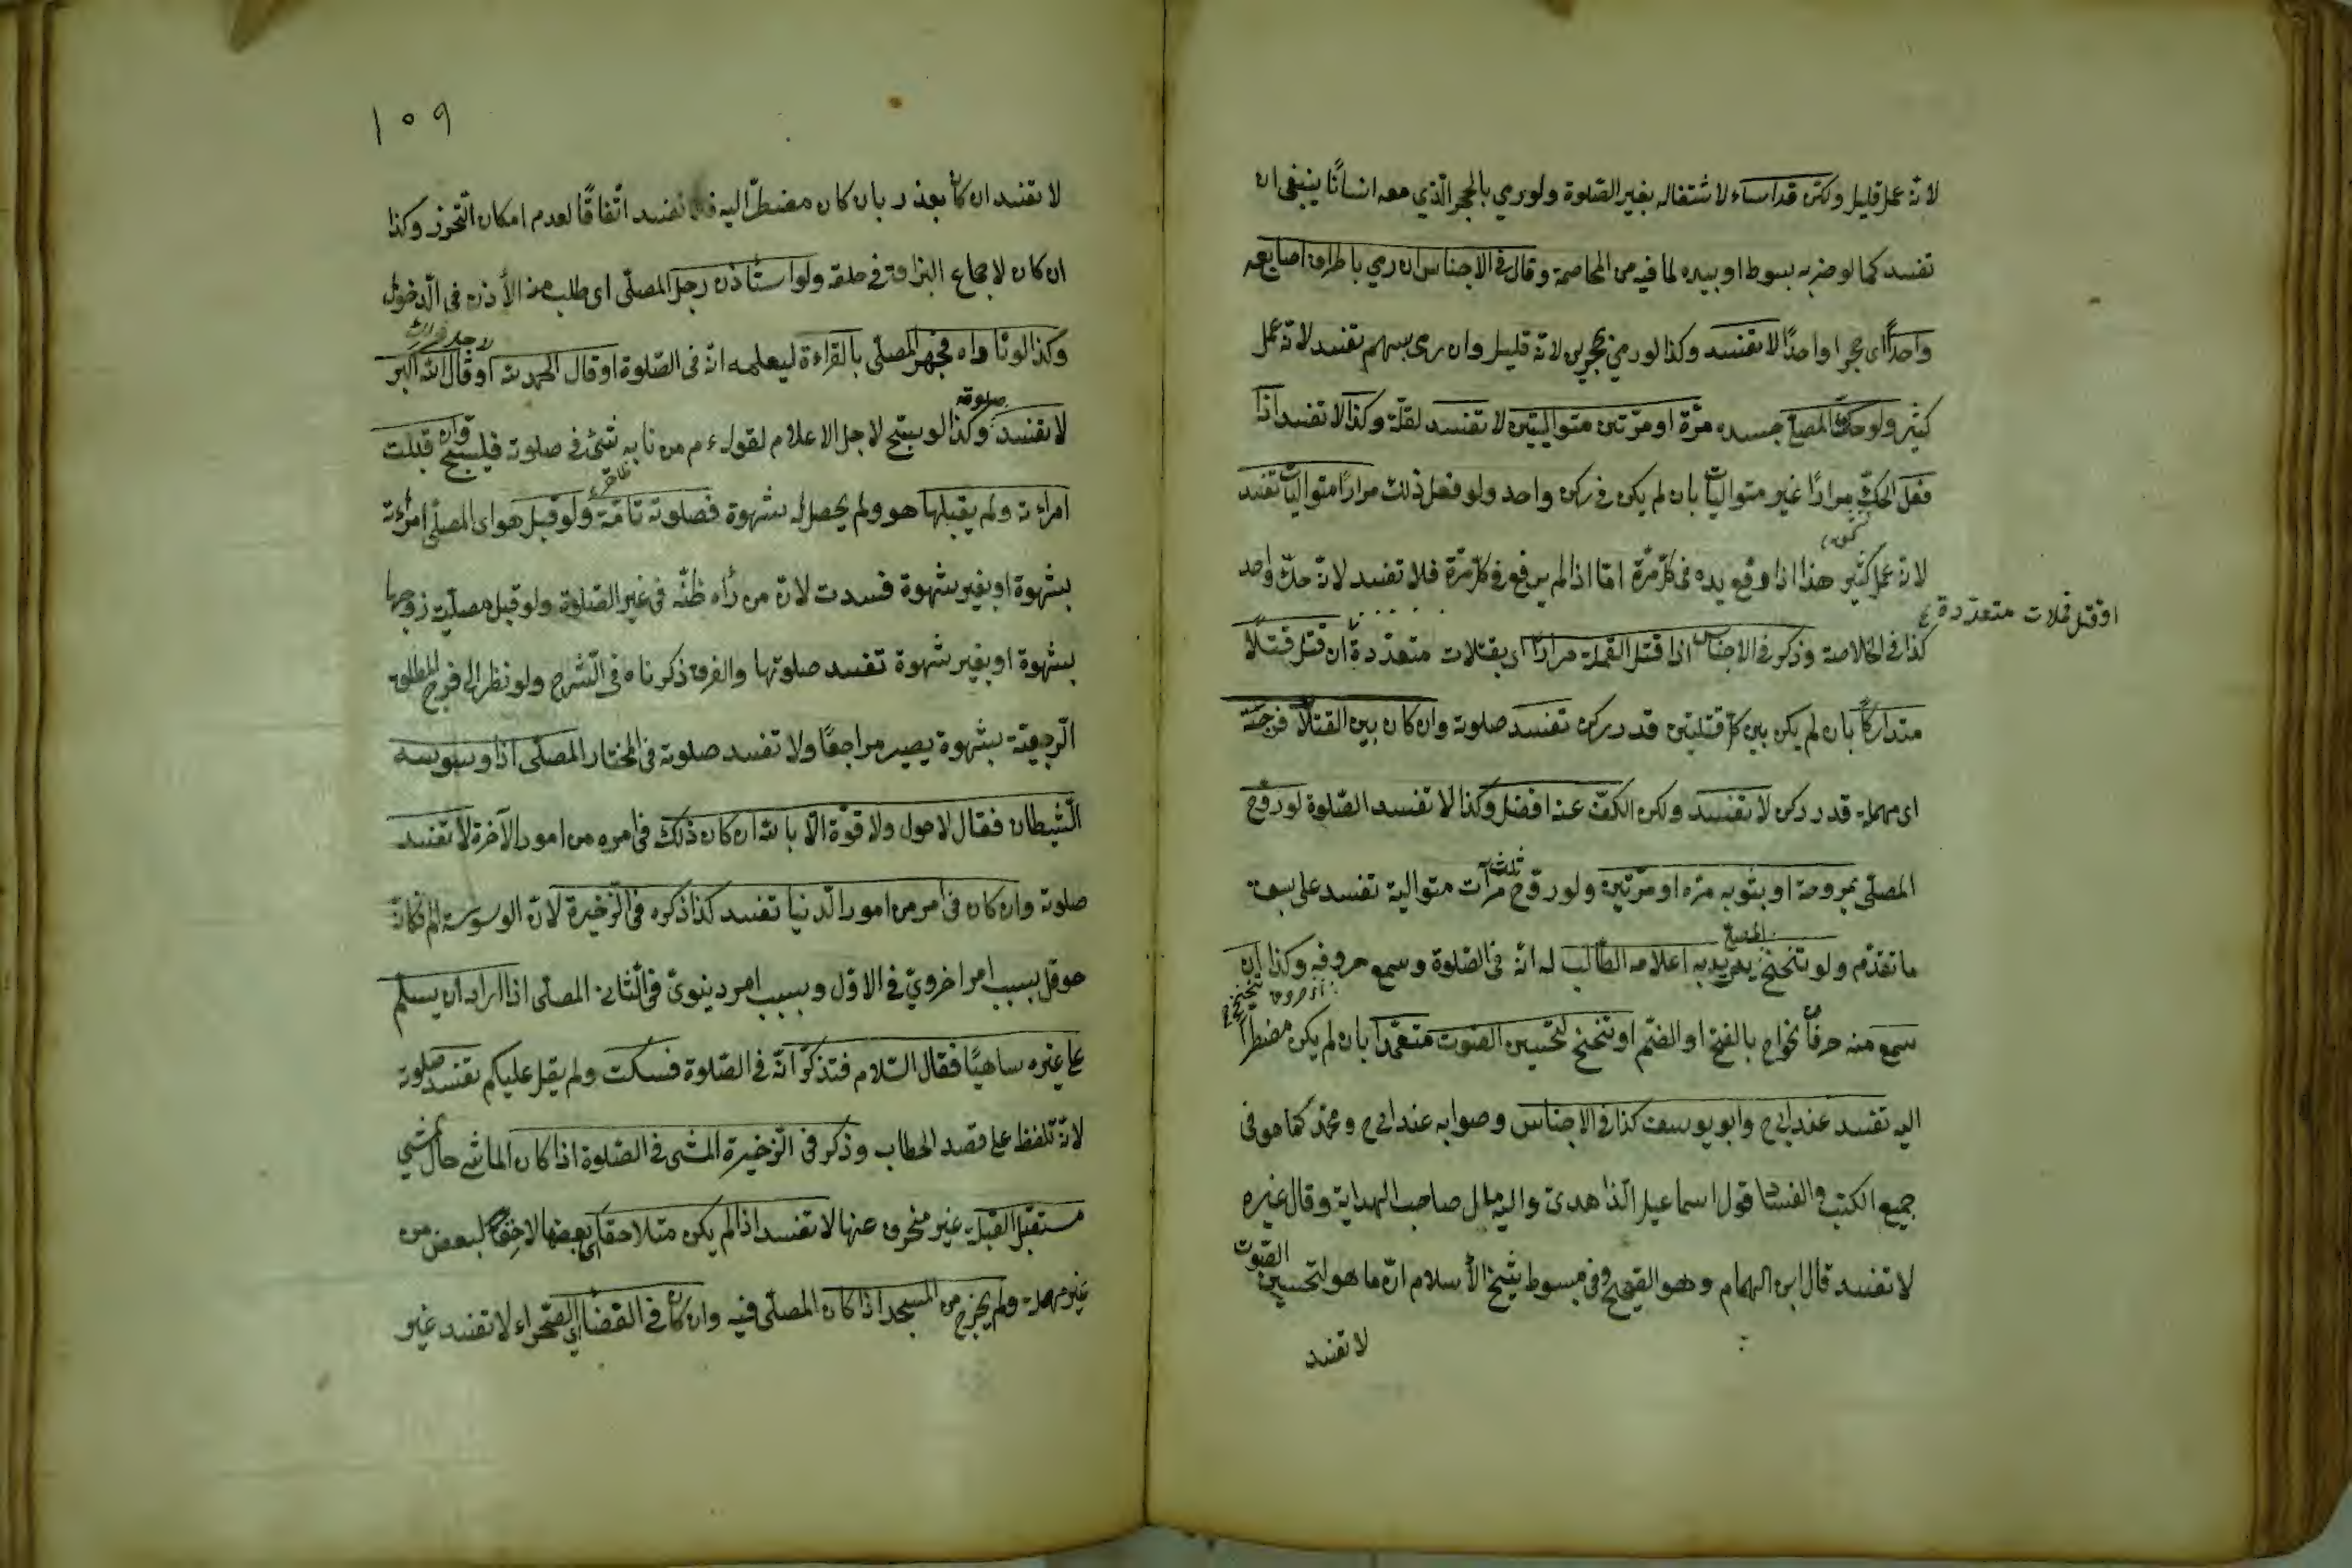 لانه عمل قليل ولكن قد اساء لاشتغاله بغير الصّلوة ولو رمي بالحجر الّذي معه انسانًا ينبغى ان
تفسد كما لو ضربه بسوط او بيده لما فيه من المخاصمة وقال فى الاجناس ان رمي باطراف اصابعه
واحدًا اى حجرا واحدًا لا تفسد وكذا لو رمي بحجرين لانه قليل وان رمى بسهم تفسد لانه عمل
كثير ولو حكّ المصلّي جسده مرّة او مرّتين متواليتين لا تفسد لقلّته وكذا لا تفسد اذا
فعل الحكّ مرارًا غير متواليات بان لم يكن فى ركن واحد ولو فعل ذلك مرارًا متواليات تفسد
لانه عمل كثير هذا اذا رفع يده فى كلّ مرّة امّا اذا لم يرفع فى كلّ مرّة فلا تفسد لانه حكّ واحد
او قتل قملات متعدّدة
كذا فى الخلاصة وذكر فى الاجناس اذا قتل القملة مرارًا اى بقتلات متعدّدة ان قتل قتلًا
متداركًا بان لم يكن بين كلّ قتلتين قدر ركن تفسد صلوته وان كان بين القتلات فرجة
اى مهملة قدر ركن لا تفسد ولكن الكفّ عنه افضل وكذا لا تفسد الصّلوة لو روّح
المصلّى بمروحة او بثوبه مرّة او مرّتين ولو روّح ثلث مرّات متوالية تفسد على سبق
ما تقدّم ولو تنحنح المصلّي يريد به اعلامه الطّالب له انّه فى الصّلوة وسمع حروفه وكذا ان
سمع منه حرفان نحو اح بالفتح او الضّم او تنحنح لتحسين الصّوت متعمّدًا بان لم يكن مضطرًّا
اليه تفسد عند ابى ح وابو يوسف كذا فى الاجناس وصوابه عند ابى ح ومحمّد كما هو فى
جميع الكتب والفساد قول اسماعيل الزاهدى واليه مال صاحب الهداية وقال غيره
لا تفسد قال ابن الهمام وهو الصّحيح وفى مبسوط شيخ الأسلام انّ ما هو لتحسين الصّوت
لا تفسد
١٥٩
لا تفسد ان كان بعذر بان كان مضطرًّا اليه فلا تفسد اتّفاقًا لعدم امكان التّحرّز وكذا
ان كان لاجتماع البزاق فى حلقه ولو استأذن رجل المصلّى اى طلب منه الأذن فى الدّخول
وكذا لو ناداه فجهر المصلّى بالقراءة ليعلمه انّه فى الصّلوة او قال الحمد لله او قال الله اكبر
لا تفسد صلوته وكذا لو سبّح لاجل الاعلام لقوله ءم من نابه شئ فى صلوته فليسبّح وان قبلت
امراءته ولم يقبلها هو ولم يحصل له شهوة فصلوته تامّة ولو قبل هو اى المصلّى امرأته
بشهوة او بغير شهوة فسدت لانّ من رأه ظنّه فى غير الصّلوة ولو قبل مصلّية زوجها
بشهوة او بغير شهوة تفسد صلوتها والفرق ذكرناه فى الشّرح ولو نظر الى فرج المطلقة
الرّجعيّة بشهوة يصير مراجعًا ولا تفسد صلوته فى المختار المصلّى اذا وسوسه
الشّيطان فقال لا حول ولا قوّة الّا بالله ان كان ذلك فى امره من امور الآخرة لا تفسد
صلوته وان كان فى امر من امور الدّنيا تفسد كذا ذكره فى الذّخيرة لانّ الوسوسة الم فكانّه
حوقل بسبب امر اخرويّ فى الاوّل وبسبب امر دنيويّ فى الثّانى المصلّى اذا اراد ان يسلّم
على غيره ساهيًا فقال السّلام فتذكّر انّه فى الصّلوة فسكت ولم يقل عليكم تفسد صلوته
لانّه تلفظ على قصد الخطاب وذكر فى الذّخيرة المشى فى الصّلوة اذا كان الماشى حال مشي
مستقبل القبلة غير منحرف عنها لا تفسد اذا لم يكن متلاحقًا اى بعضها لاحقًا لبعض من
غير مهملة ولم يخرج من المسجد اذا كان المصلّى فيه وان كان فى الفضاء اى الصّحراء لا تفسد غير